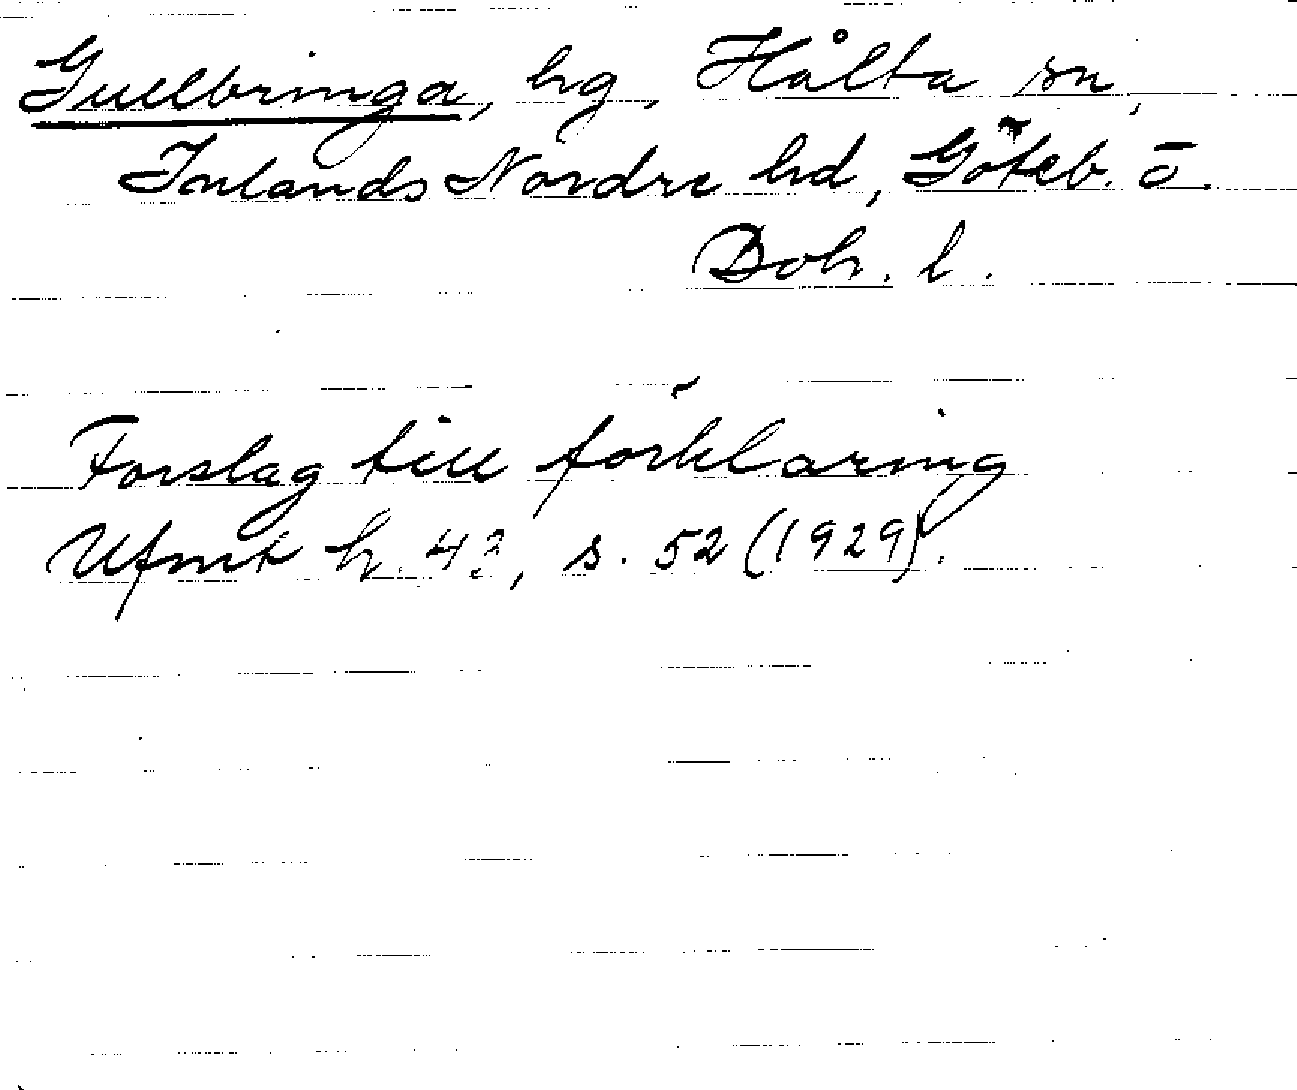 Gullbringa, hg, Hålta sn,
Inlands Nordre hd, Göteb. o.
Boh. l.
Förslag till förklaring
Ufmt h. 43, s. 52 (1929).